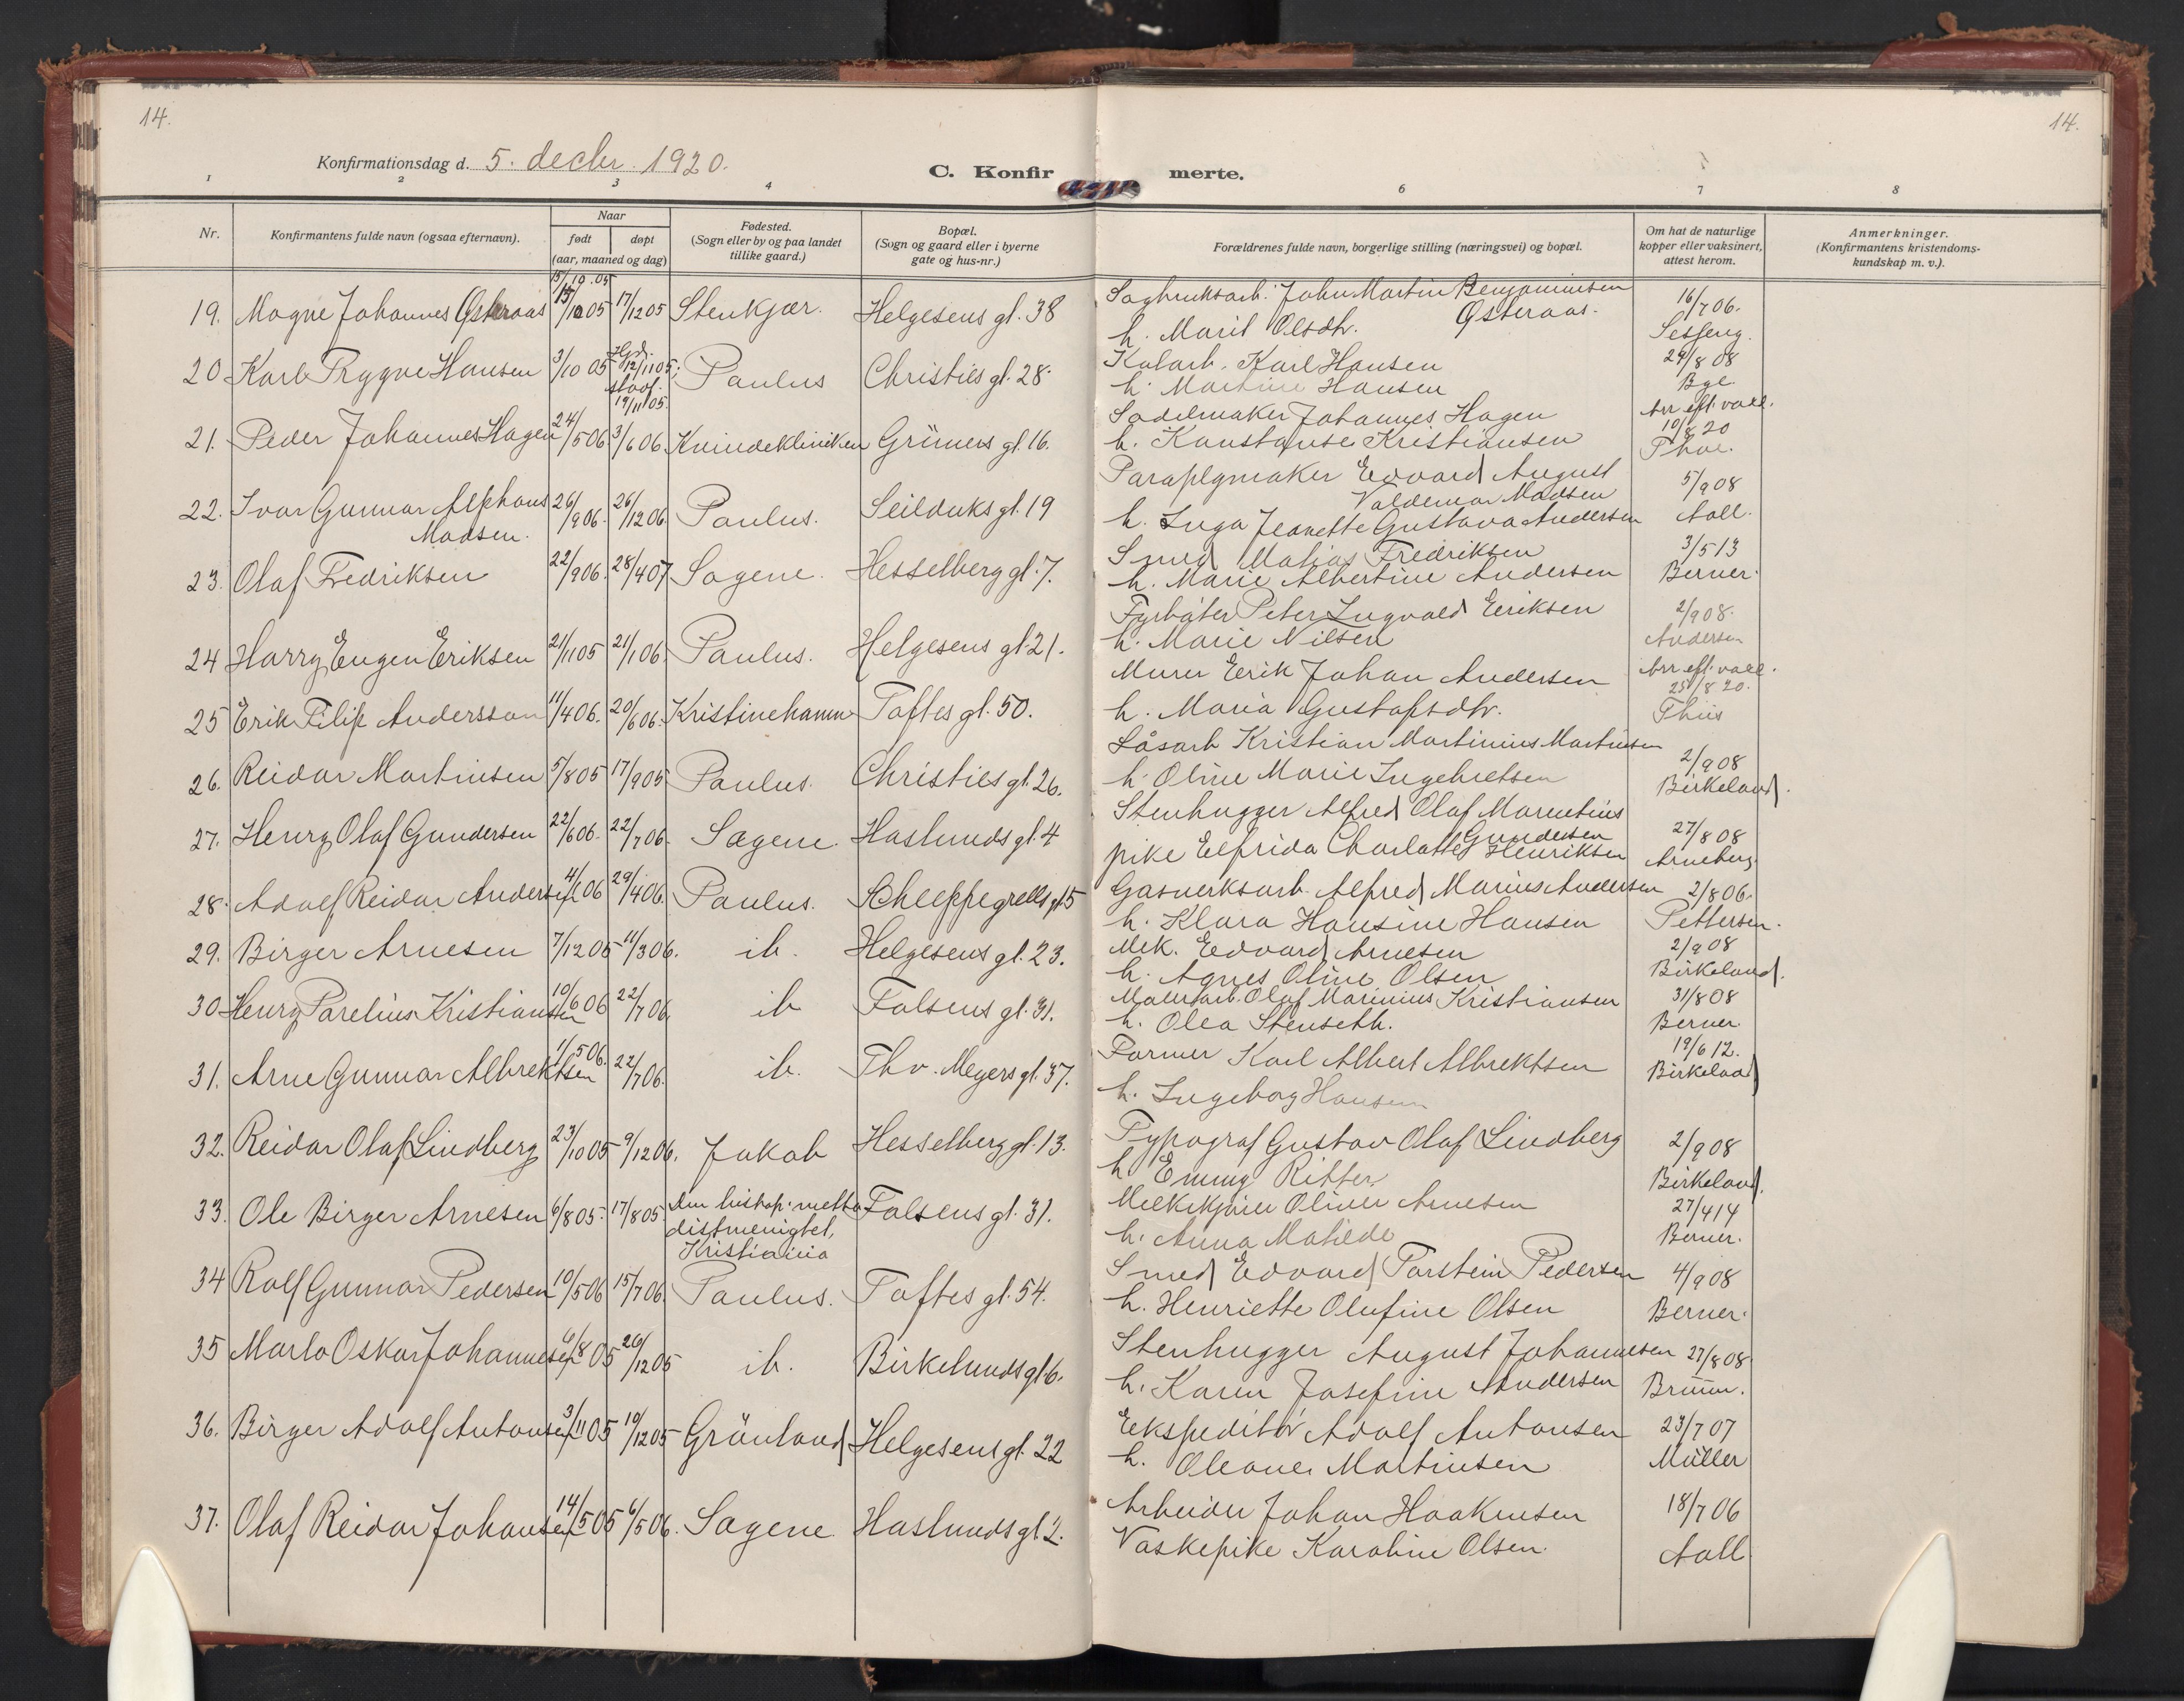 14.
14.
Konfirmationsdag d. 5. decbr. 1920.
C. Konfirmerte.
1 2 3 4 6 7 8
Nr.
Konfirmantens fulde navn (ogsaa efternavn).
Naar
født døpt
(aar, maaned og dag)
Fødested.
(Sogn eller by og paa landet
tillike gaard.)
Bopæl.
(Sogn og gaard eller i byerne
gate og hus-nr.)
Forældrenes fulde navn, borgerlige stilling (næringsvei) og bopæl.
Om hat de naturlige
kopper eller vaksinert,
attest herom.
Anmerkninger.
(Konfirmantens kristendoms-
kundskap m. v.).
15/10.05
19. Magne Johannes Østeraas 15/10 05 17/12 05 Stenkjær. Helgesens gt. 38 Sagbruksarb. John Martin Benjaminsen 16/7 06.
Østeraas.
h. Marit Olsdtr. Sesseng.
20 Karl Trygve Hansen 3/10 05 Hjd. 12/11 05; Paulus Christies gt. 28. Kularb. Karl Hansen 24/8 08
stadf. 19/11 05. h. Martine Hansen Bye
21. Peder Johannes Hagen 24/5 06 3/6 06 Kvindekliniken Grüners gt. 16. Sadelmaker Johannes Hagen Arr eft. vacc.
10/8 20
h. Konstanse Kristiansen Thoe.
22. Ivar Gunnar Alphons 26/9 06. 26/12 06. Paulus. Seilduks gt. 19 Paraplymaker Edvard August 5/9 08
Madsen. Valdemar Madsen
h. Inga Jeanette Gustava Andersen Aall.
23. Olaf Fredriksen 22/9 06. 28/4 07 Sagene. Hesselberg gt. 7. Smed Matias Fredriksen 3/5 13
h. Marie Albertine Andersen Berner.
24 Harry Eugen Eriksen 21/11 05 21/1 06. Paulus. Helgesens gt. 21. Fyrbøter Peter Ingvald Eriksen 2/9 08.
h. Marie Nilsen Andersen
25 Erik Filip Andersson 11/4 06. 20/6 06. Kristinehamn Toftes gt. 50. Murer Erik Johan Andersen Arr eft. vacc.
25/8 20.
h. Maria Gustafsdtr. Thiis
26. Reidar Martinsen 5/8 05 17/9 05 Paulus. Christies gt. 26. Låsarb Kristian Martinius Martinsen 2/9 08
h. Oline Marie Ingebretsen Birkeland.
27. Henry Olaf Gundersen 22/6 06. 22/7 06. Sagene. Haslunds gt. 4 Stenhugger Alfred Olaf Marentius 27/8 08
Gundersen
pike Elfrida Charlotte Henriksen Arneberg.
28. Adolf Reidar Andersen 4/1 06 29/4 06. Paulus. Schleppegrells gt. 5 Gasverksarb. Alfred Marius Andersen 2/8 06.
h. Klara Hansine Hansen Pettersen.
29. Birger Arnesen 7/12 05 11/3 06. ib. Helgesens gt. 23. Mek. Edvard Arnesen 2/9 08
h. Agnes Oline Olsen Birkeland.
30 Henry Parelius Kristiansen 10/6 06 22/7 06. ib Falsens gt. 31. Malerarb. Olaf Marinius Kristiansen 31/8 08
h. Olea Stenseth. Berner.
31. Arne Gunnar Albrektsen 11/5 06. 22/7 06. ib. Thv. Meyers gt. 37. Former Karl Albert Albrektsen 19/6 12.
h. Ingeborg Hansen Birkeland
32. Reidar Olaf Lindberg 23/10 05 9/12 06. Jakob Hesselberg gt. 13. Typograf Gustav Olaf Lindberg 2/9 08
h Emmy Ritter Birkeland.
33. Ole Birger Arnesen 6/8 05. 17/8 05 Den biskop. metho- Falsens gt. 31. Melkekjører Oliver Arnesen 27/4 14
distmenighet,
Kristiania h. Anna Matilde Berner.
34 Rolf Gunnar Pedersen 10/5 06 15/7 06. Paulus. Toftes gt. 54. Smed Edvard Torstein Pedersen 4/9 08
h. Henriette Olufine Olsen Berner.
35 Marlo Oskar Johannesen 6/8 05 26/12 05 ib. Birkelunds gt. 6. Stenhugger August Johannesen 27/8 08.
h. Karen Josefine Andersen Bruun.
36. Birger Adolf Antonsen 3/11 05 10/12 05 Grönland Helgesens gt. 22 Ekspeditør Adolf Antonsen 23/7 07
h. Oleane Martinsen Müller
37. Olaf Reidar Johansen 14/5 05 6/5 06. Sagene Haslunds gt. 2. Arbeider Johan Haakensen 18/7 06
Vaskepike Karoline Olsen. Aall.